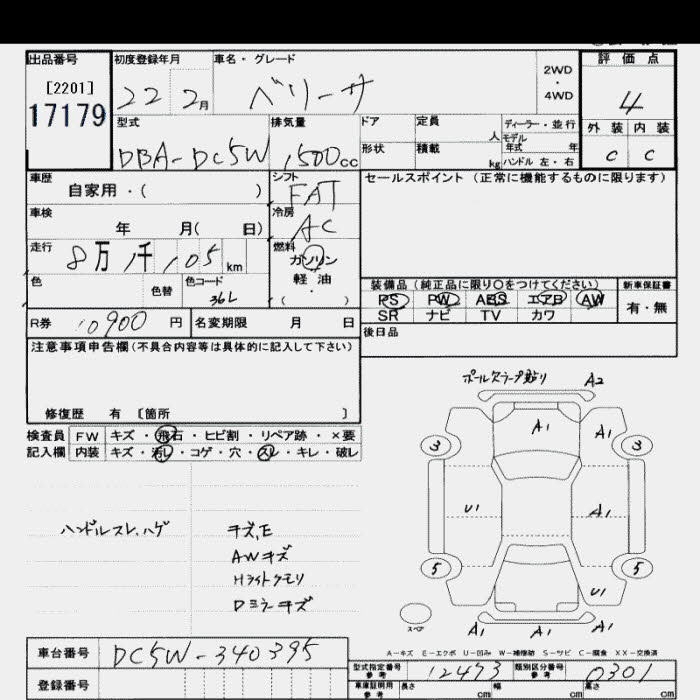 出品番号 初度登録年月 車名・グレード 2WD・4WD 評価点
[2201]
17179
22 2月 ベリーサ 4
型式 排気量 ドア 定員 人 ディーラー・並行 外装 内装
DBA-DC5W 1500cc 形状 積載 kg モデル年式 年 C C
ハンドル 左・右
車歴 シフト セールスポイント (正常に機能するものに限ります)
自家用・( ) FAT
車検 冷房
年 月( 日) AC
走行 8万1千105km 燃料
ガソリン
色 色替 色コード 軽・油
36L ( )
装備品 (純正品に限り○をつけてください) 新車保証書
PS PW ABS エアB AW 有・無
SR ナビ TV カワ
R券 10900円 名変期限 月 日
後日品
注意事項申告欄(不具合内容等は具体的に記入して下さい)
修復歴 有 〔箇所 〕
検査員 FW キズ・飛石・ヒビ割・リペア跡・×要
記入欄 内装 キズ・汚レ・コゲ・穴・スレ・キレ・破レ
A2
A1 A1
3 3
U1 A1
5 5
U1
スペア A1 A1 A1
ハンドルスレ、ハゲ
キズ,E
AWキズ
Hライトクモリ
Dミラーキズ
A-キズ E-エクボ U-凹み W-補修跡 S-サビ C-腐食 XX-交換済
車台番号 DC5W-340395
型式指定番号 参考 12473 類別区分番号 参考 0301
登録番号
車庫証明用 参考 長さ cm 幅 cm 高さ cm